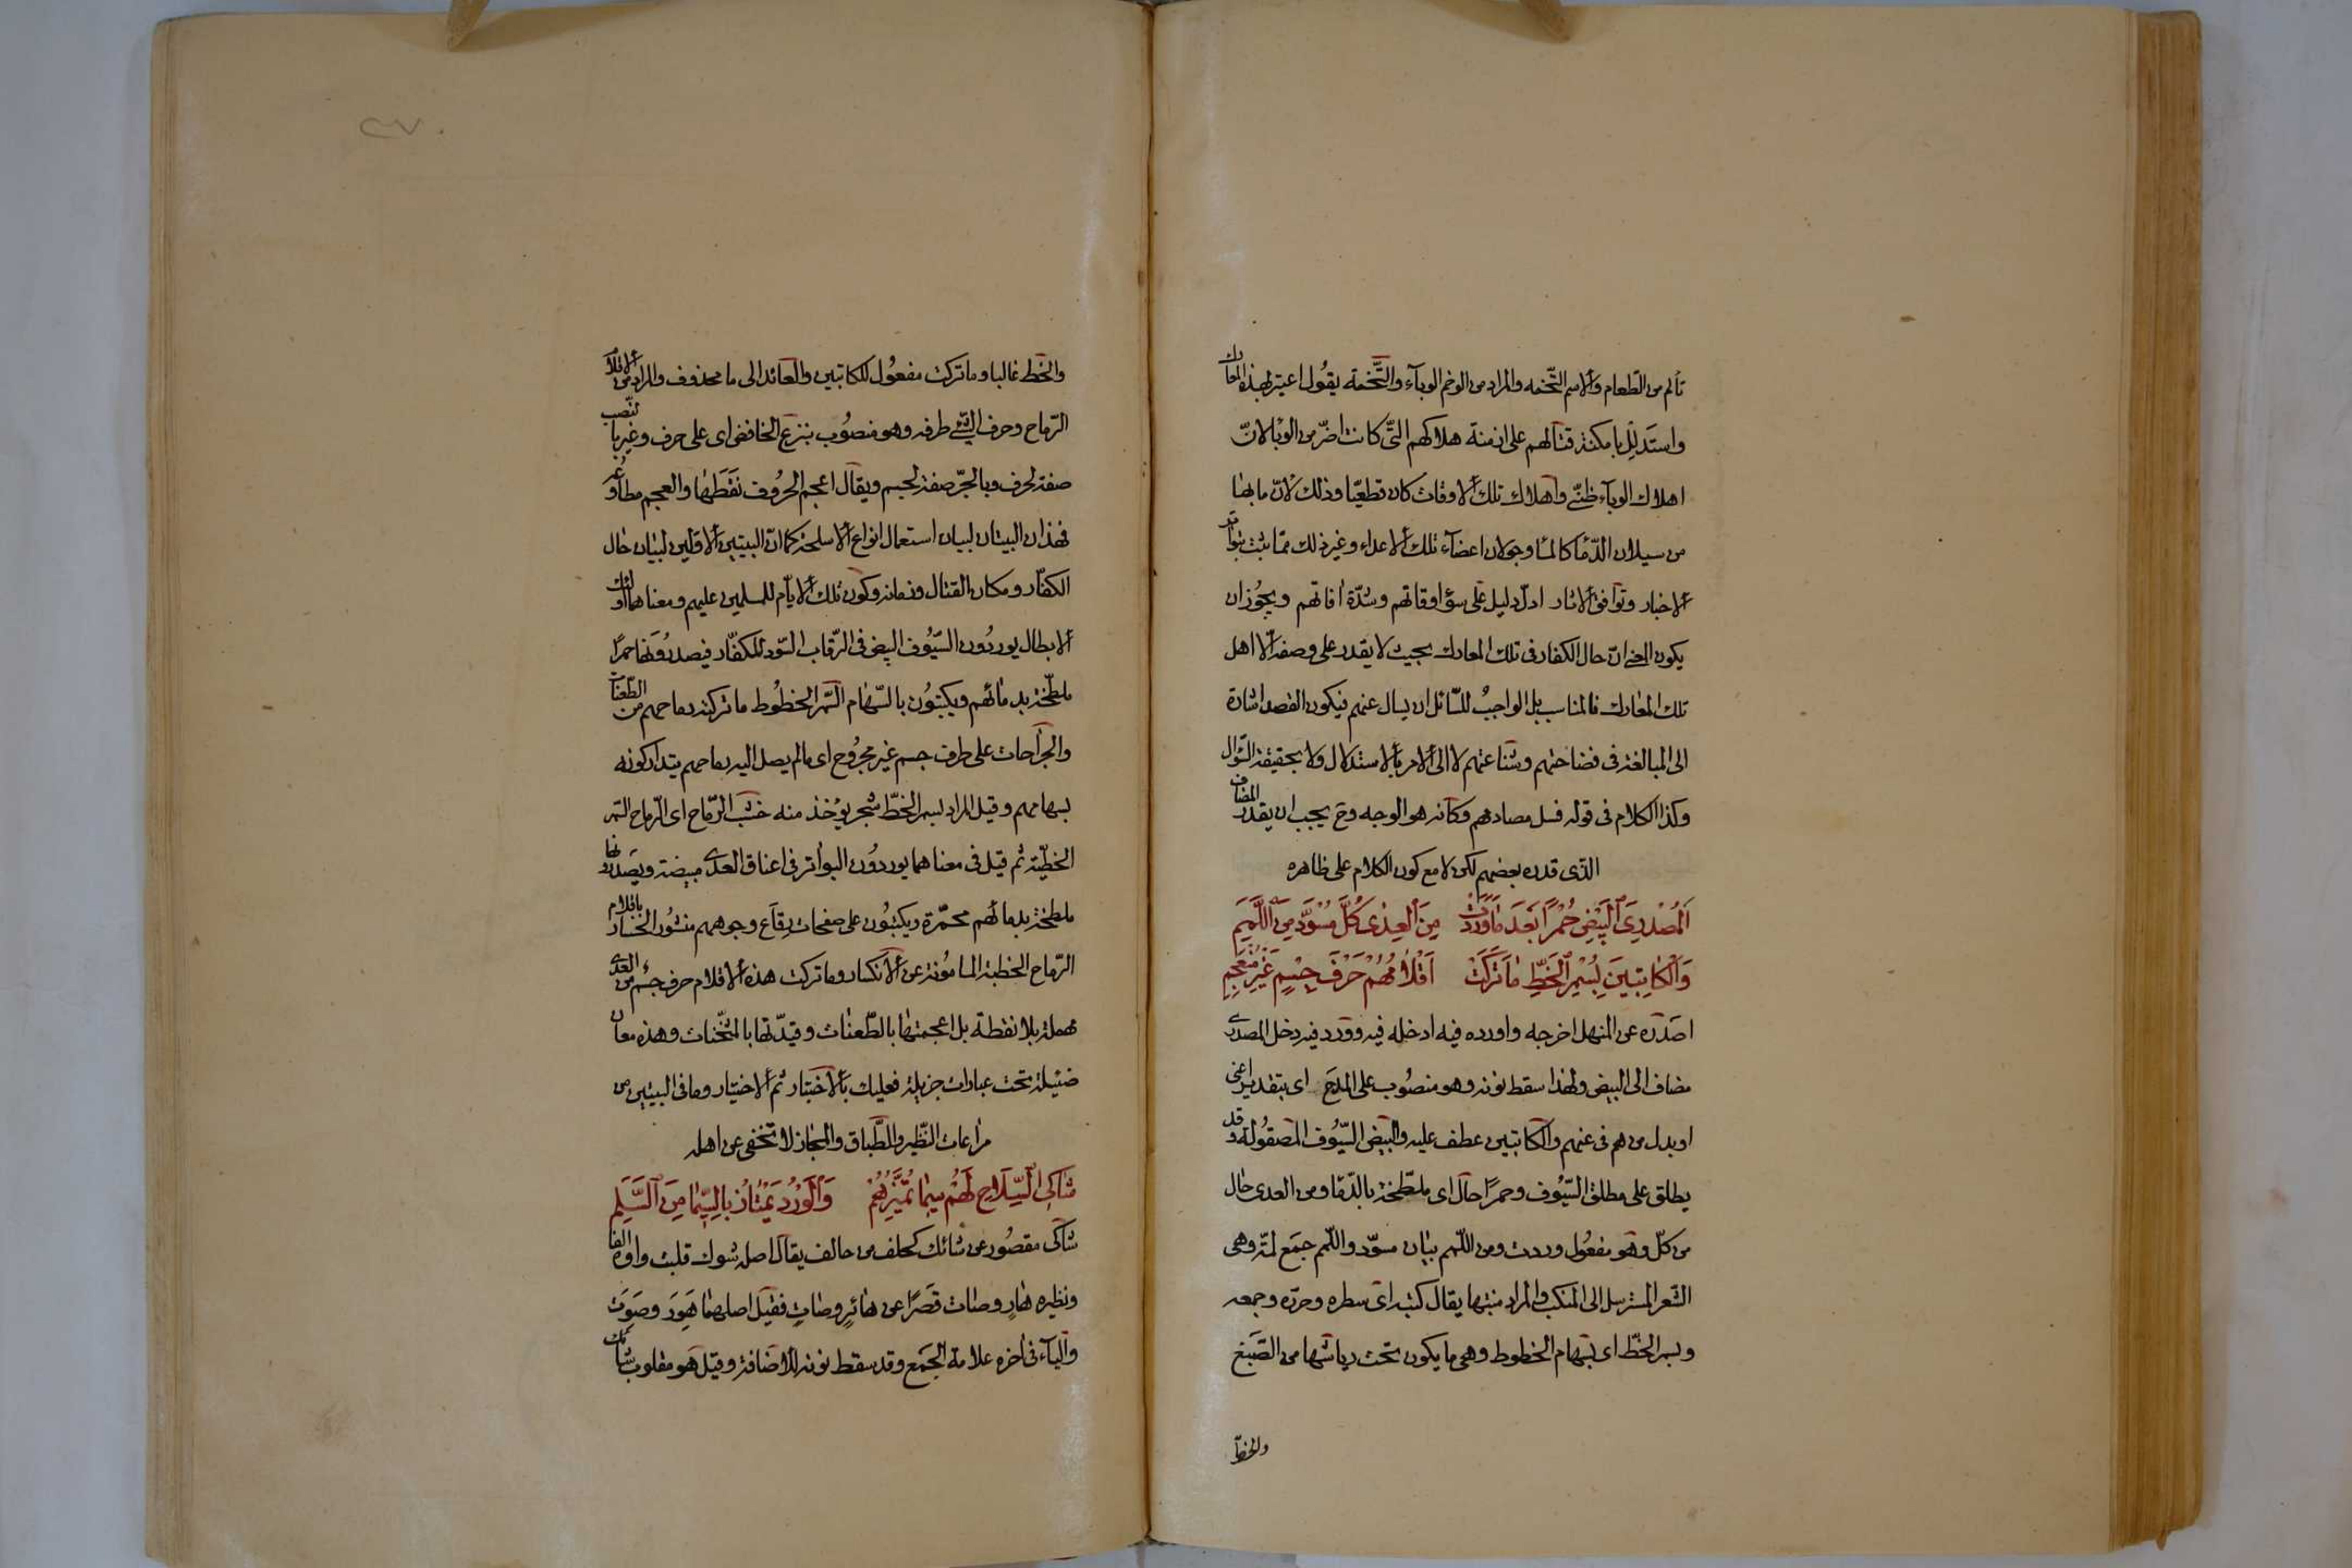 تألم من الطعام والاسم التخمه والمراد من الوخم الوبآء والتخمة يقول اعتبر لهذه المعارك
واستدلل بامكنة قتالهم على ازمنة هلاكهم التى كانت اضر من الوبا لان
اهلاك الوبآء ظنى واهلاك تلك الاوقات كان قطعيا وذلك لان ما بها
من سيلان الدمآ كالمآ وجولان اعضآء تلك الاعداء وغير ذلك مما يثبت بتواتر
الاخبار وتوافق الاثار ادل دليل على سؤ اوقاتهم وشدة افاتهم ويجوز ان
يكون المعنى ان حال الكفار فى تلك المعارك بحيث لا يقدر على وصفه الا اهل
تلك المعارك فالمناسب بل الواجب للسائل ان يسال عنهم فيكون القصد اشارة
الى المبالغة فى فضاحتهم وشناعتهم لا الى الامر بالاستدلال ولا بحقيقة السؤال
وكذا الكلام فى قوله فسل مصادمهم وكانه هو الوجه وح يجب ان يقدر المضاف
الذى قدره بعضهم لكن لا مع كون الكلام على ظاهره
اَلْمُصْدِرِىَ الْبِيْضِ حُمْرًا بَعْدَ مَا وَرَدَتْ مِنَ الْعِدٰى كُلَّ مُسْوَدٍّ مِنَ اللِّمَمِ
وَالْكَاتِبِيْنَ بِسُمْرِ الْخَطِّ مَا تَرَكَتْ اَقْلَامُهُمْ حَرْفَ جِسْمٍ غَيْرَ مُنْعَجِمِ
اصدره عن المنهل اخرجه واورده فيه ادخله فيه وورد فيه دخل المصدرى
مضاف الى البيض ولهذا سقط نونه وهو منصوب على المدح اى بتقدير اعنى
او بدل من هم فى عنهم والكاتبين عطف عليه والبيض السيوف المصقولة وقد
يطلق على مطلق السيوف وحمرا حال اى ملطخة بالدما ومن العدى حال
من كل وهو مفعول وردت ومن اللمم بيان مسود واللمم جمع لمة وهى
الشعر المسترسل الى المنكب والمراد منبتها يقال كتبه اى سطره وحرره وجمعه
وسمر الخط اى بسهام الخطوط وهى ما يكون تحت رياشها من الصبغ
والخط
٢٧٠
والخط غالبا وما تركت مفعول للكاتبين والعائد الى ما محذوف والمراد من الاقلام
الرماح وحرف الشئ طرفه وهو منصوب بنزع الخافض اى على حرف وغير بالنصب
صفة لحرف وبالجر صفة لجسم ويقال اعجم الحروف نقطها والعجم مطاوعه
فهذان البيتان لبيان استعمال انواع الاسلحة كما ان البيتين الاولين لبيان حال
الكفار ومكان القتال وزمانه وكون تلك الايام للمسلمين عليهم ومعناهما اولئك
الابطال يوردون السيوف البيض فى الرقاب السود للكفار فيصدرونها حمرا
ملطخة بدمائهم ويكتبون بالسهام السمر الخطوط ما تركته رماحهم من الطعنات
والجراحات على طرف جسم غير مجروح اى مالم يصل اليه رماحهم يتداركونه
بسهامهم وقيل المراد بسمر الخط شجر يؤخذ منه خشب الرماح اى الرماح السمر
الخطية ثم قيل فى معناهما يوردون البواتر فى اعناق العدى مبيضة ويصدرونها
ملطخة بدمائهم محمرة ويكتبون على صفحات بقاع وجوههم منشور الخسار باقلام
الرماح الخطية المامونة عن الانكسار وما تركت هذه الاقلام حرف جسم من العدى
مهملة بلا نقطة بل اعجمتها بالطعنات وقيدتها بالمثخنات وهذه معان
ضئيلة تحت عبارات جزيلة فعليك بالاختبار ثم الاختيار وما فى البيتين من
مراعات النظير والطباق والمجاز لا تخفى عن اهله
شَاكِى السِّلَاحِ لَهُمْ سِيْمَا تُمَيِّزُهُمْ وَالْوَرْدُ يَمْتَازُ بِالسِّيْمَا مِنَ السَّلَمِ
شاكى مقصور عن شائك كحلف من حالف يقال اصله شوك قلبت واوه الفا
ونظيره هار وصات قصرا عن هائر وصات فقيل اصلهما هور وصوت
واليآء فى اخره علامة الجمع وقد سقط نونه للاضافة وقيل هو مقلوب شائك